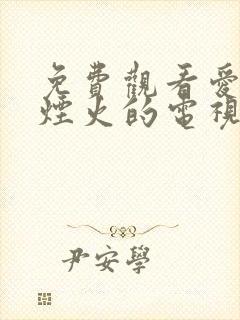 免費觀看愛
煙火的電視
尹安學